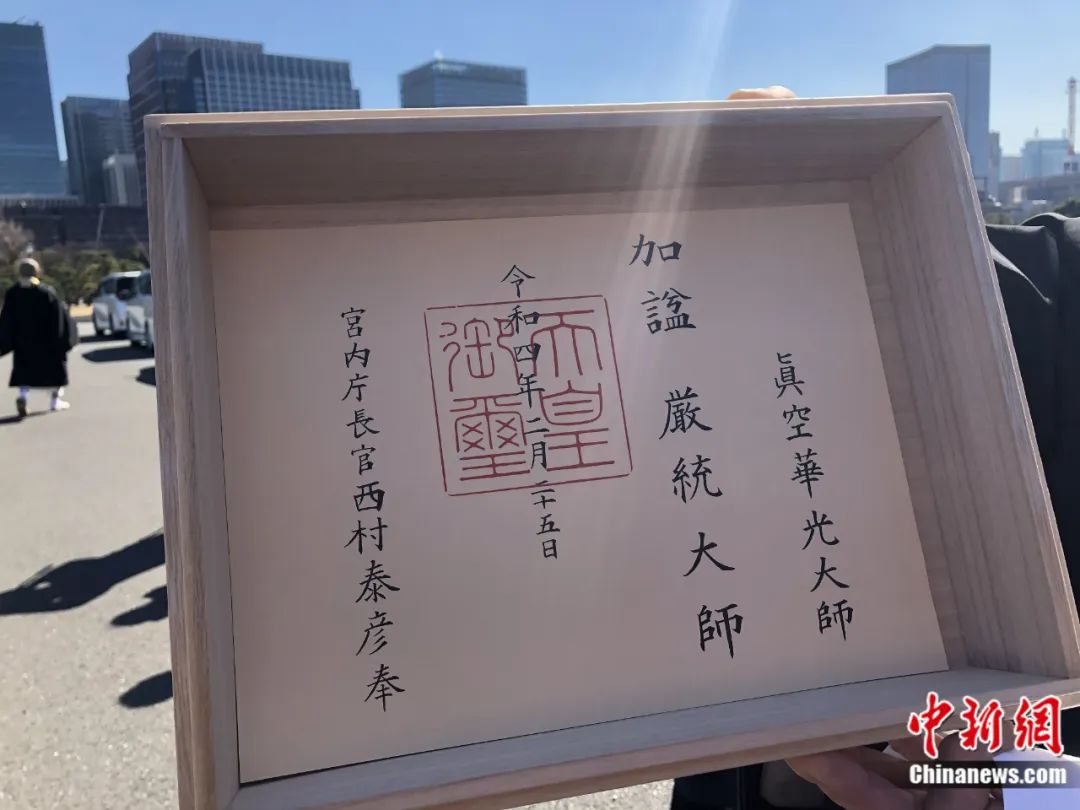 眞空華光大師
加諡 厳統大師
令和四年二月二十五日
天皇
御璽
宮内庁長官西村泰彦奉
中新网
Chinanews.com